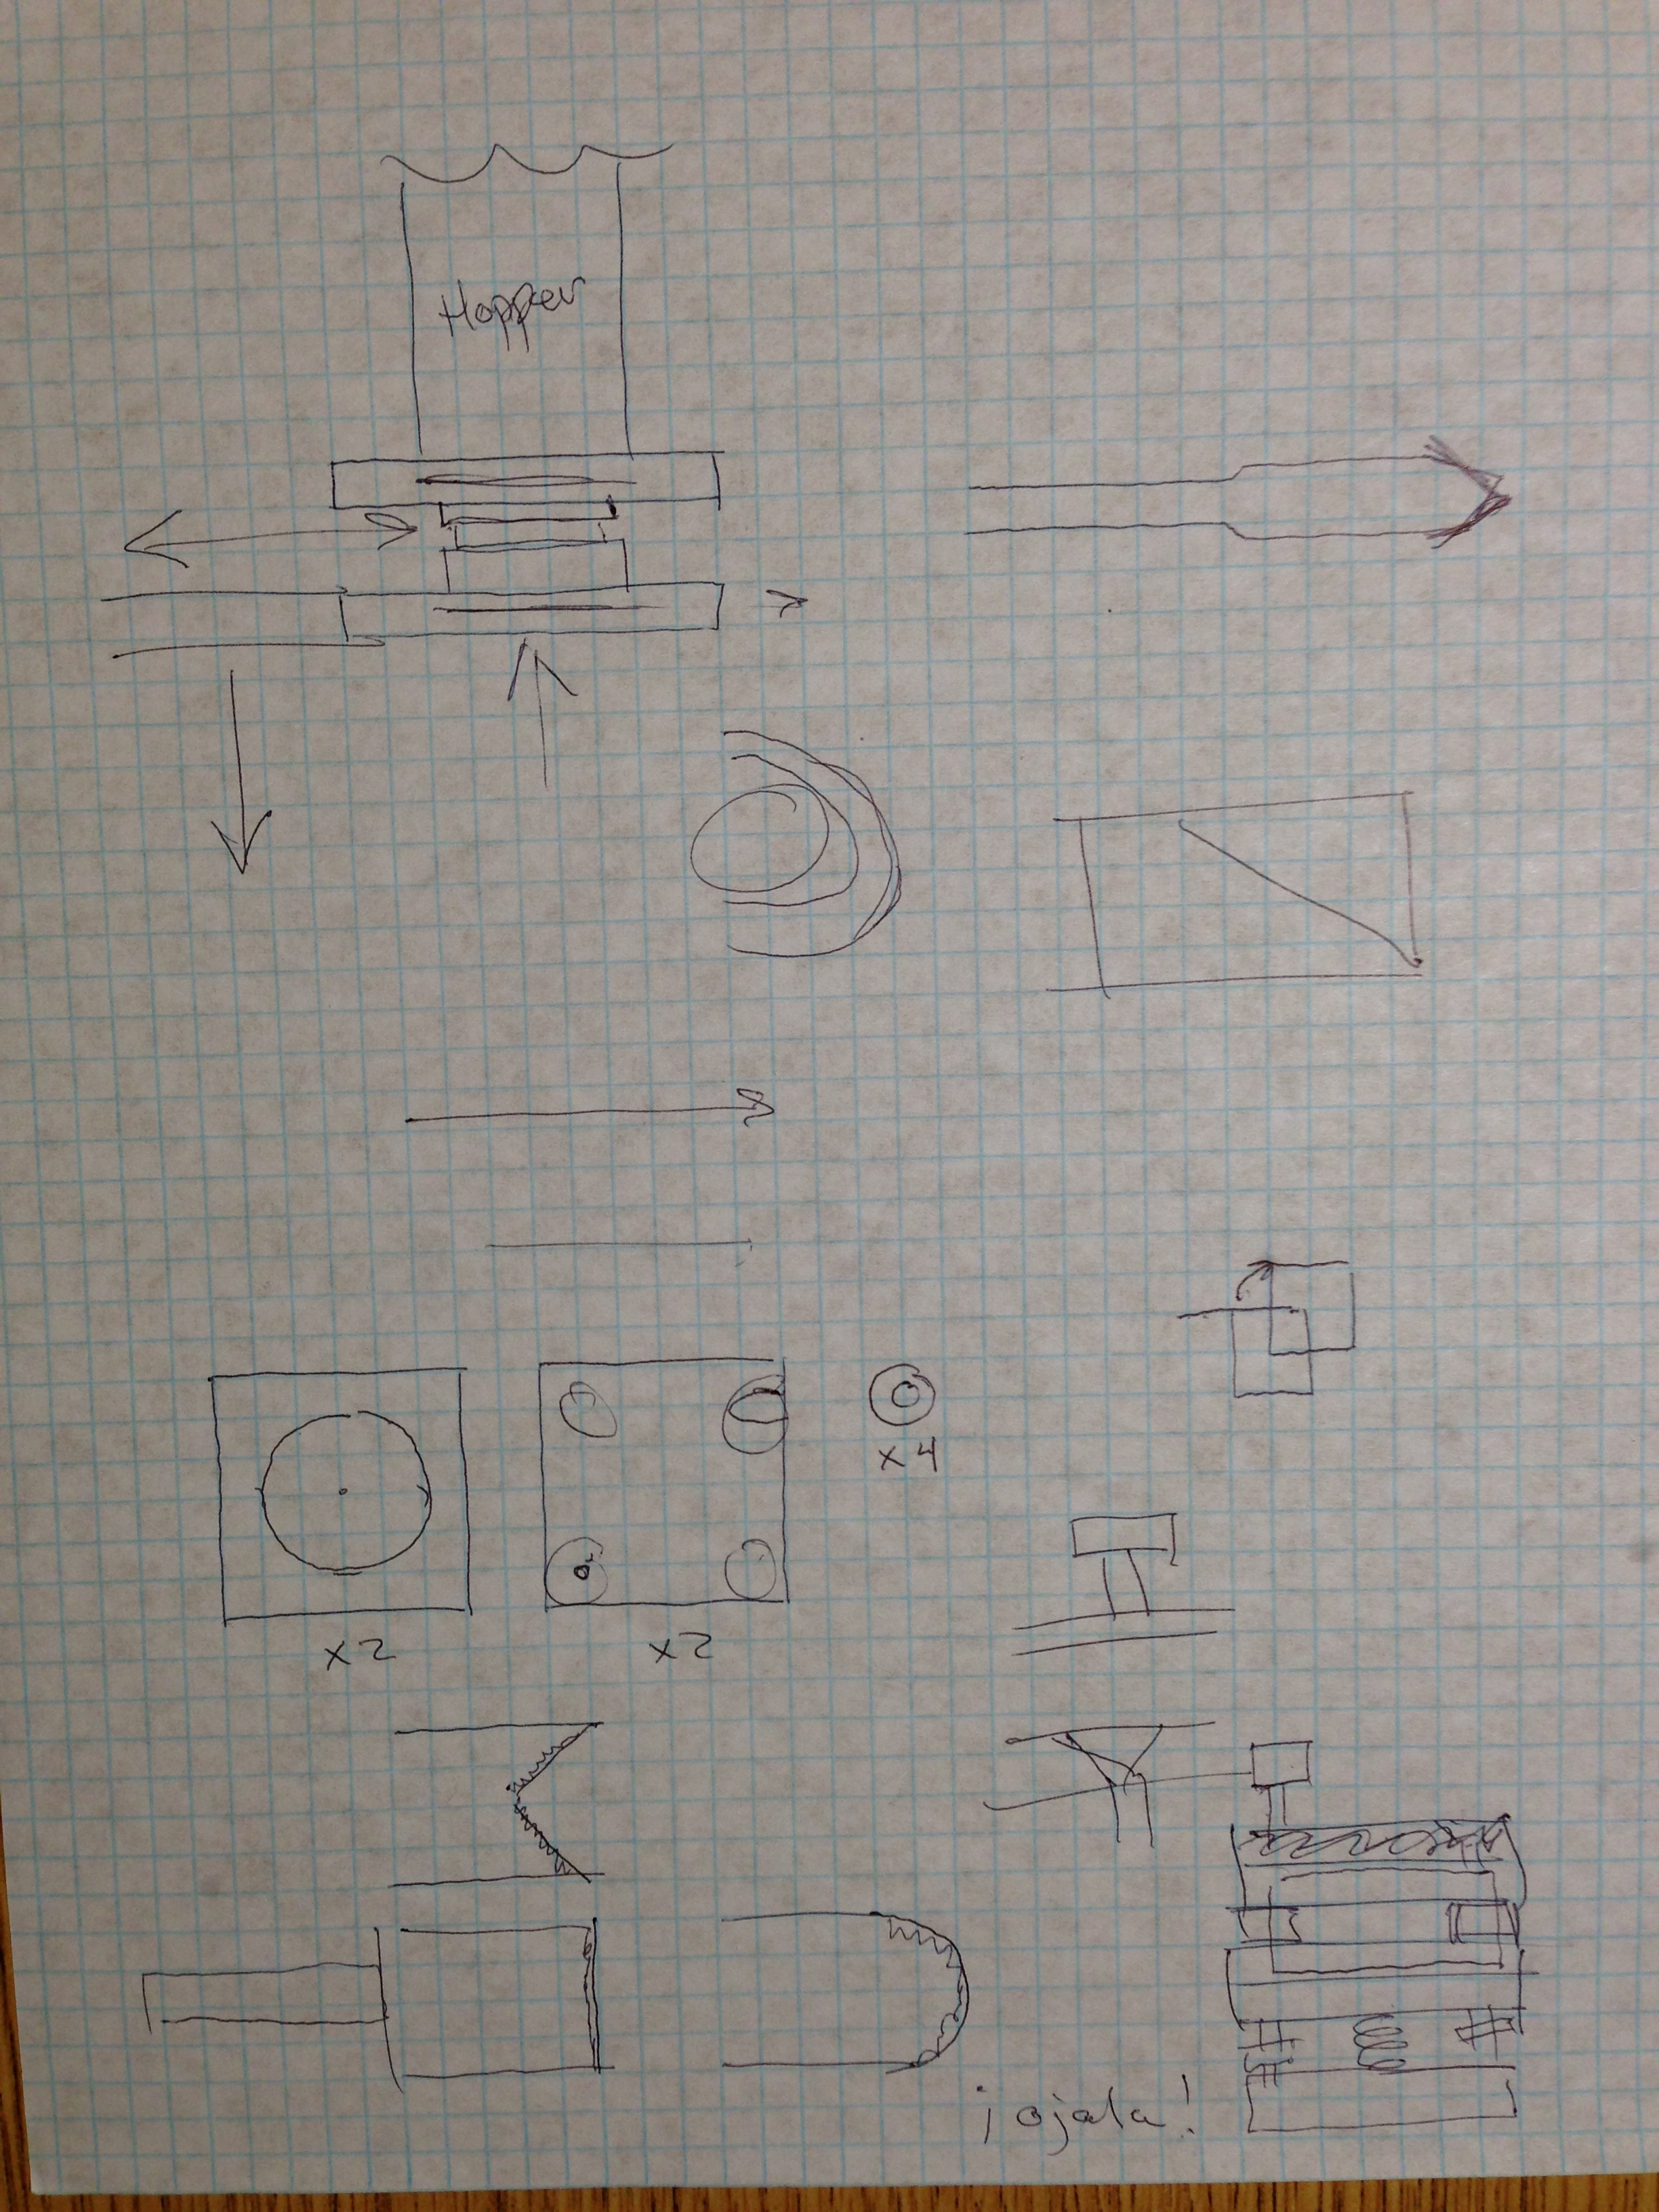 Hopper
x4
x2
x2
¡ojala!